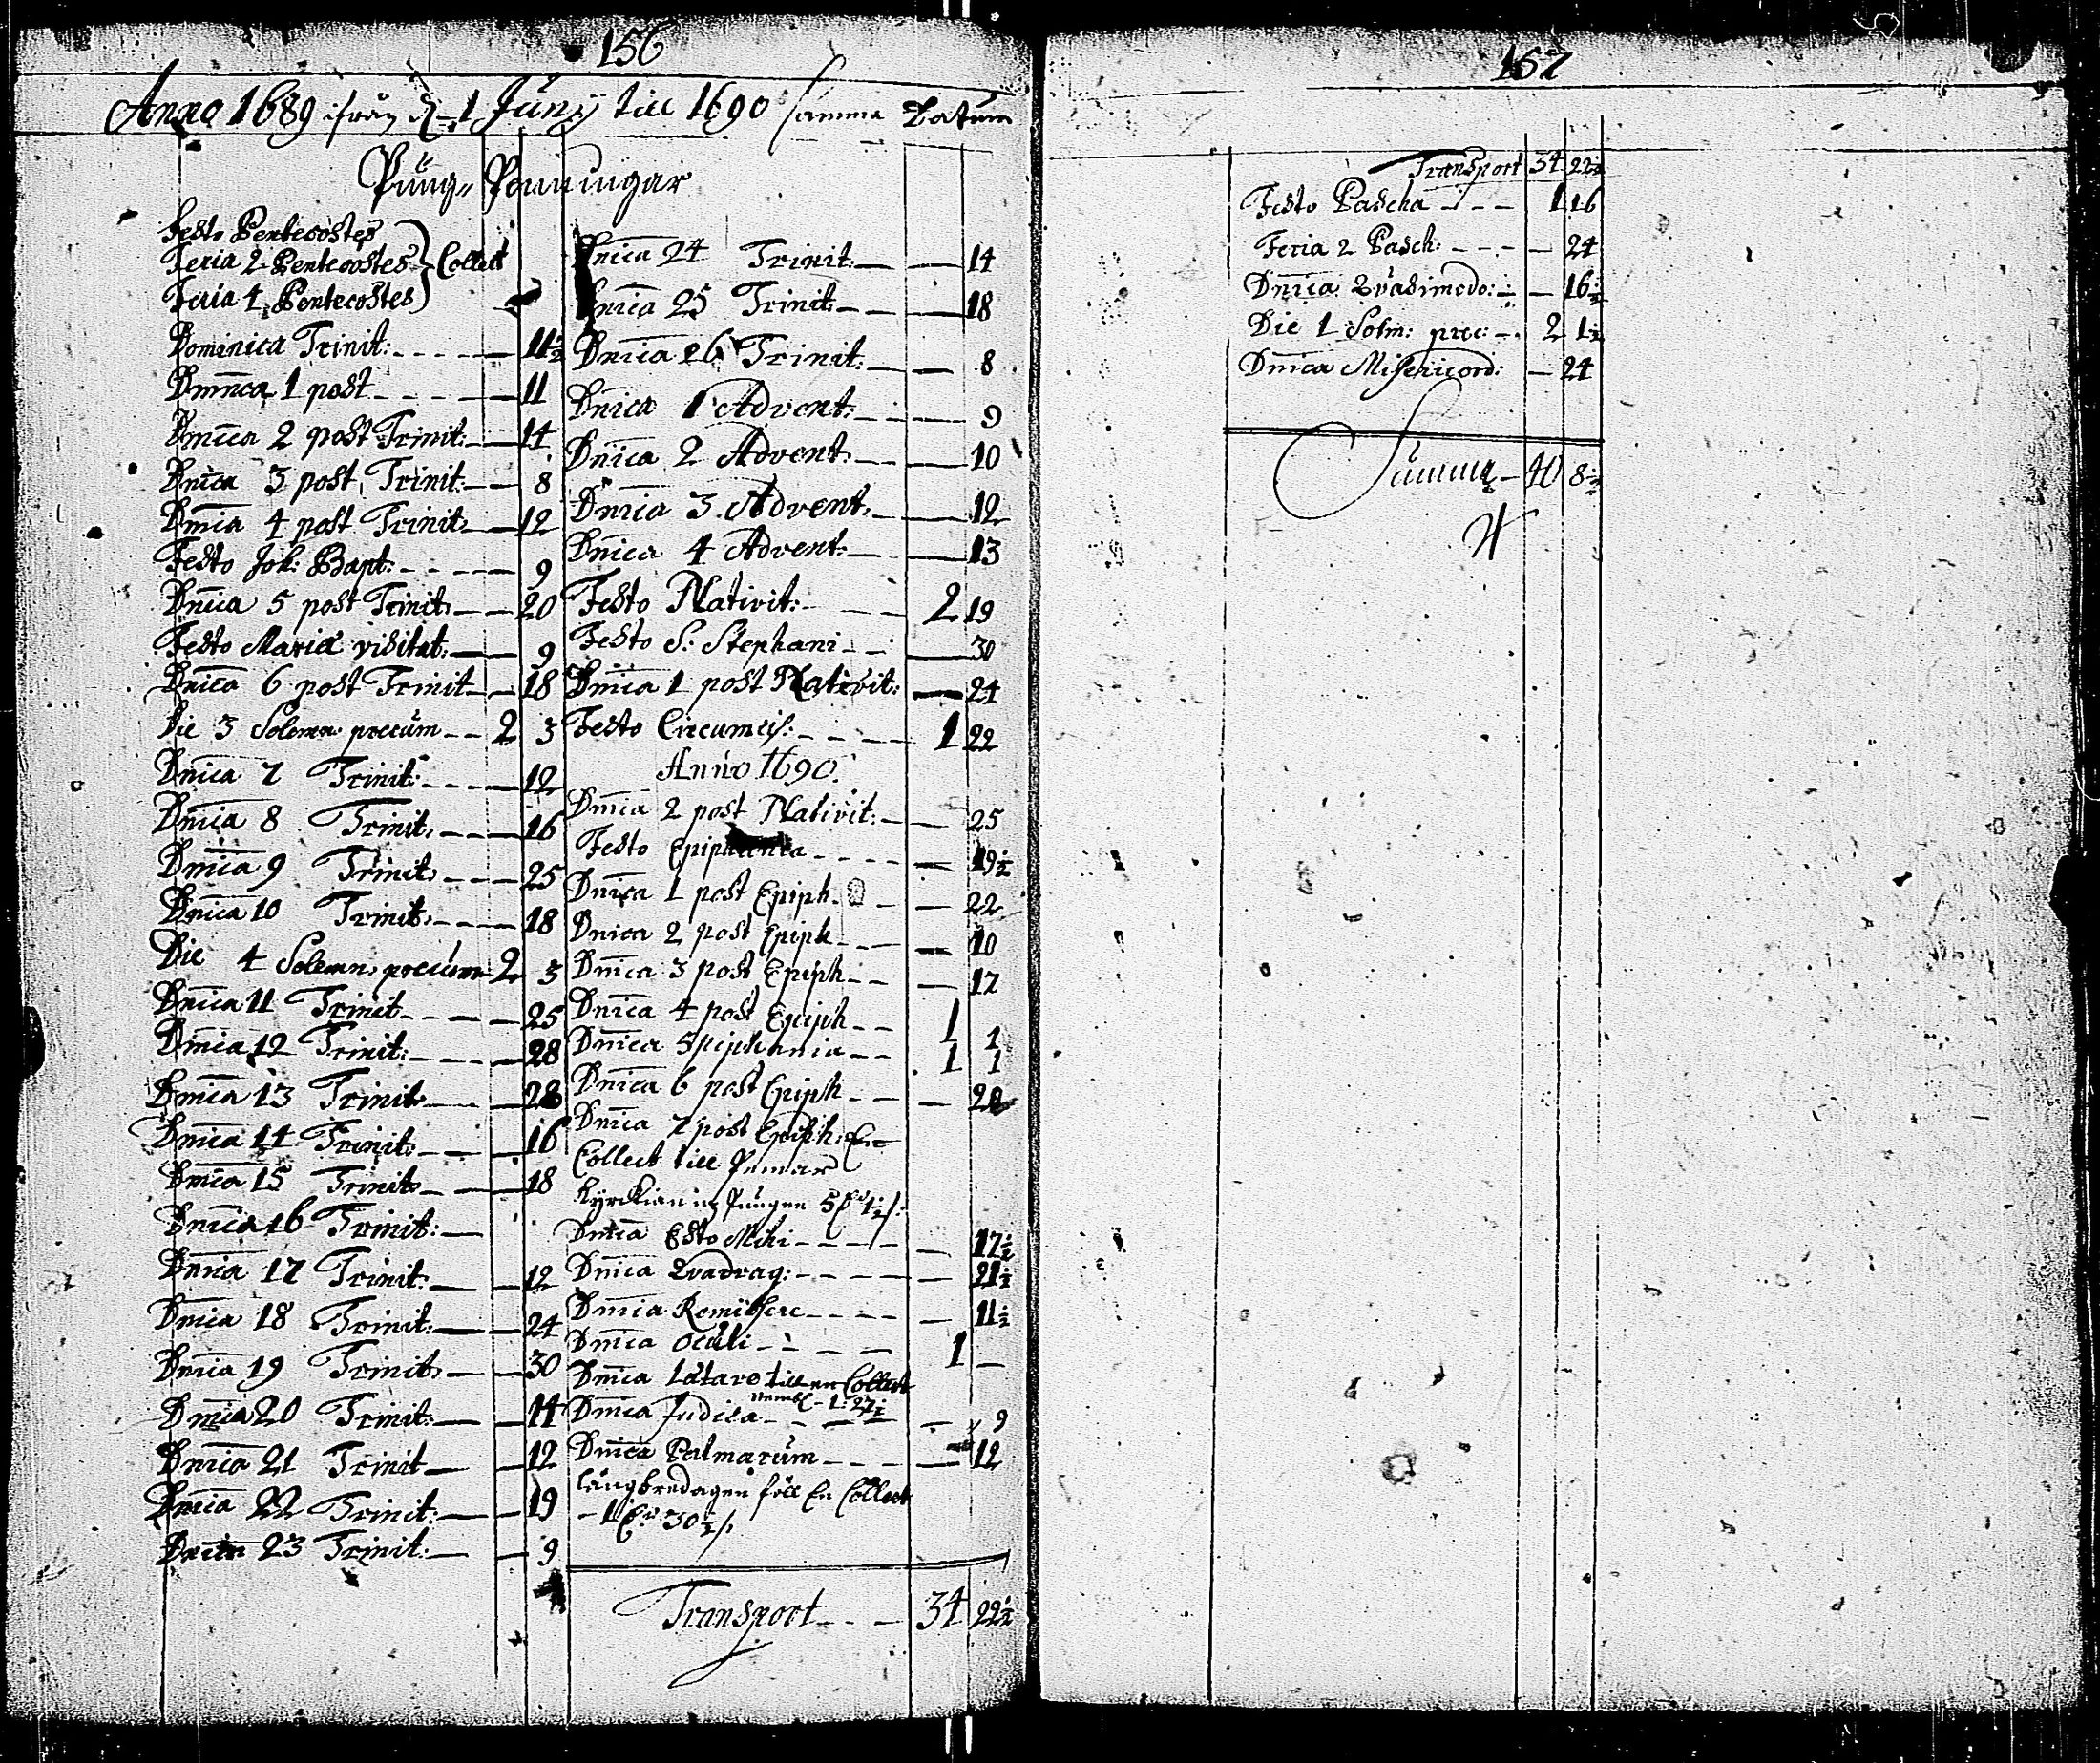 156
Anno 1689 ifrån d. 1 Junij till 1690 samma Datum
Pung-Penningar
Festo Pentecostes
Feria 2 Pentecostes } Collect
Feria 4 Pentecostes
Dominica Trinit: - - - - 11½
Dmnca 1 post - - - - - 11
Dnica 2 post Trinit: - - 14
Dnica 3 post Trinit: - - 8
Dnica 4 post Trinit: - 12
Festo Joh: Bapt: - - - - 9
Dnica 5 post Trinit: - - 20
Festo Mariæ visitat: - - 9
Dnica 6 post Trinit - - 18
Die 3 Solemn. precum - - 2 3
Dnica 7 Trinit: - - - - 12
Dnica 8 Trinit: - - - 16
Dnica 9 Trinit: - - - 25
Dnica 10 Trinit: - - - - 18
Die 4 Solemn. precum - 2 3
Dnica 11 Trinit - - - - - 25
Dnica 12 Trinit: - - - - 28
Dnica 13 Trinit: - - - 28
Dnica 14 Trinit: - - - 16
Dnica 15 Trinit: - - - 18
Dnica 16 Trinit: -
Dnica 17 Trinit: - - 12
Dnica 18 Trinit: - - 24
Dnica 19 Trinit: - - 30
Dnica 20 Trinit: - - 14
Dnica 21 Trinit - - 12
Dnica 22 Trinit: - - 19
Dnica 23 Trinit: - - 9
Dnica 24 Trinit: - - 14
Dnica 25 Trinit: - - - 18
Dnica 26 Trinit: - - 8
Dnica 1 Advent: - - - 9
Dnica 2 Advent: - - - 10
Dnica 3 Advent: - - 12
Dnica 4 Advent: - - 13
Festo Nativit: - - - 2 19
Festo S: Stephani - - - 30
Dnica 1 post Nativit: - 24
Festo Circumcis: - - - - 1 22
Anno 1690
Dnica 2 post Nativit: - - 25
Festo Epiphania - - - - - 19½
Dnica 1 post Epiph. - - - 22
Dnica 2 post Epiph - - - - 10
Dnica 3 post Epiph - - - 17
Dnica 4 post Epiph - - 1 1
Dnica 5 piphania - - 1 1
Dnica 6 post Epiph - - - 28
Dnica 7 post Epiph: En
Collect till
Kyrckian ur Pungen 5 1½
Dnica Esto Mihi - - - - - 17½
Dnica Qvadrag: - - - - - 21½
Dnica Reminscere - - - - - 11½
Dnica Oculi - - - - 1 -
Dnica Lætare till en Collect
nembl - 1: 27½
Dnica Judica - - - - - 9
Dnica Palmarum - - - - 12
Långfredagen föll En Collect
- 1 30½
Transport - - - 34 22½
157
Transport 34 22½
Festo Pascha - - - - 1 16
Feria 2 Pasch: - - - - 24
Dnica Qvasimodo: - - 16½
Die 1 Solm: prec: - 2 1½
Dnica Misericord: - 24
Summa - 40 8½